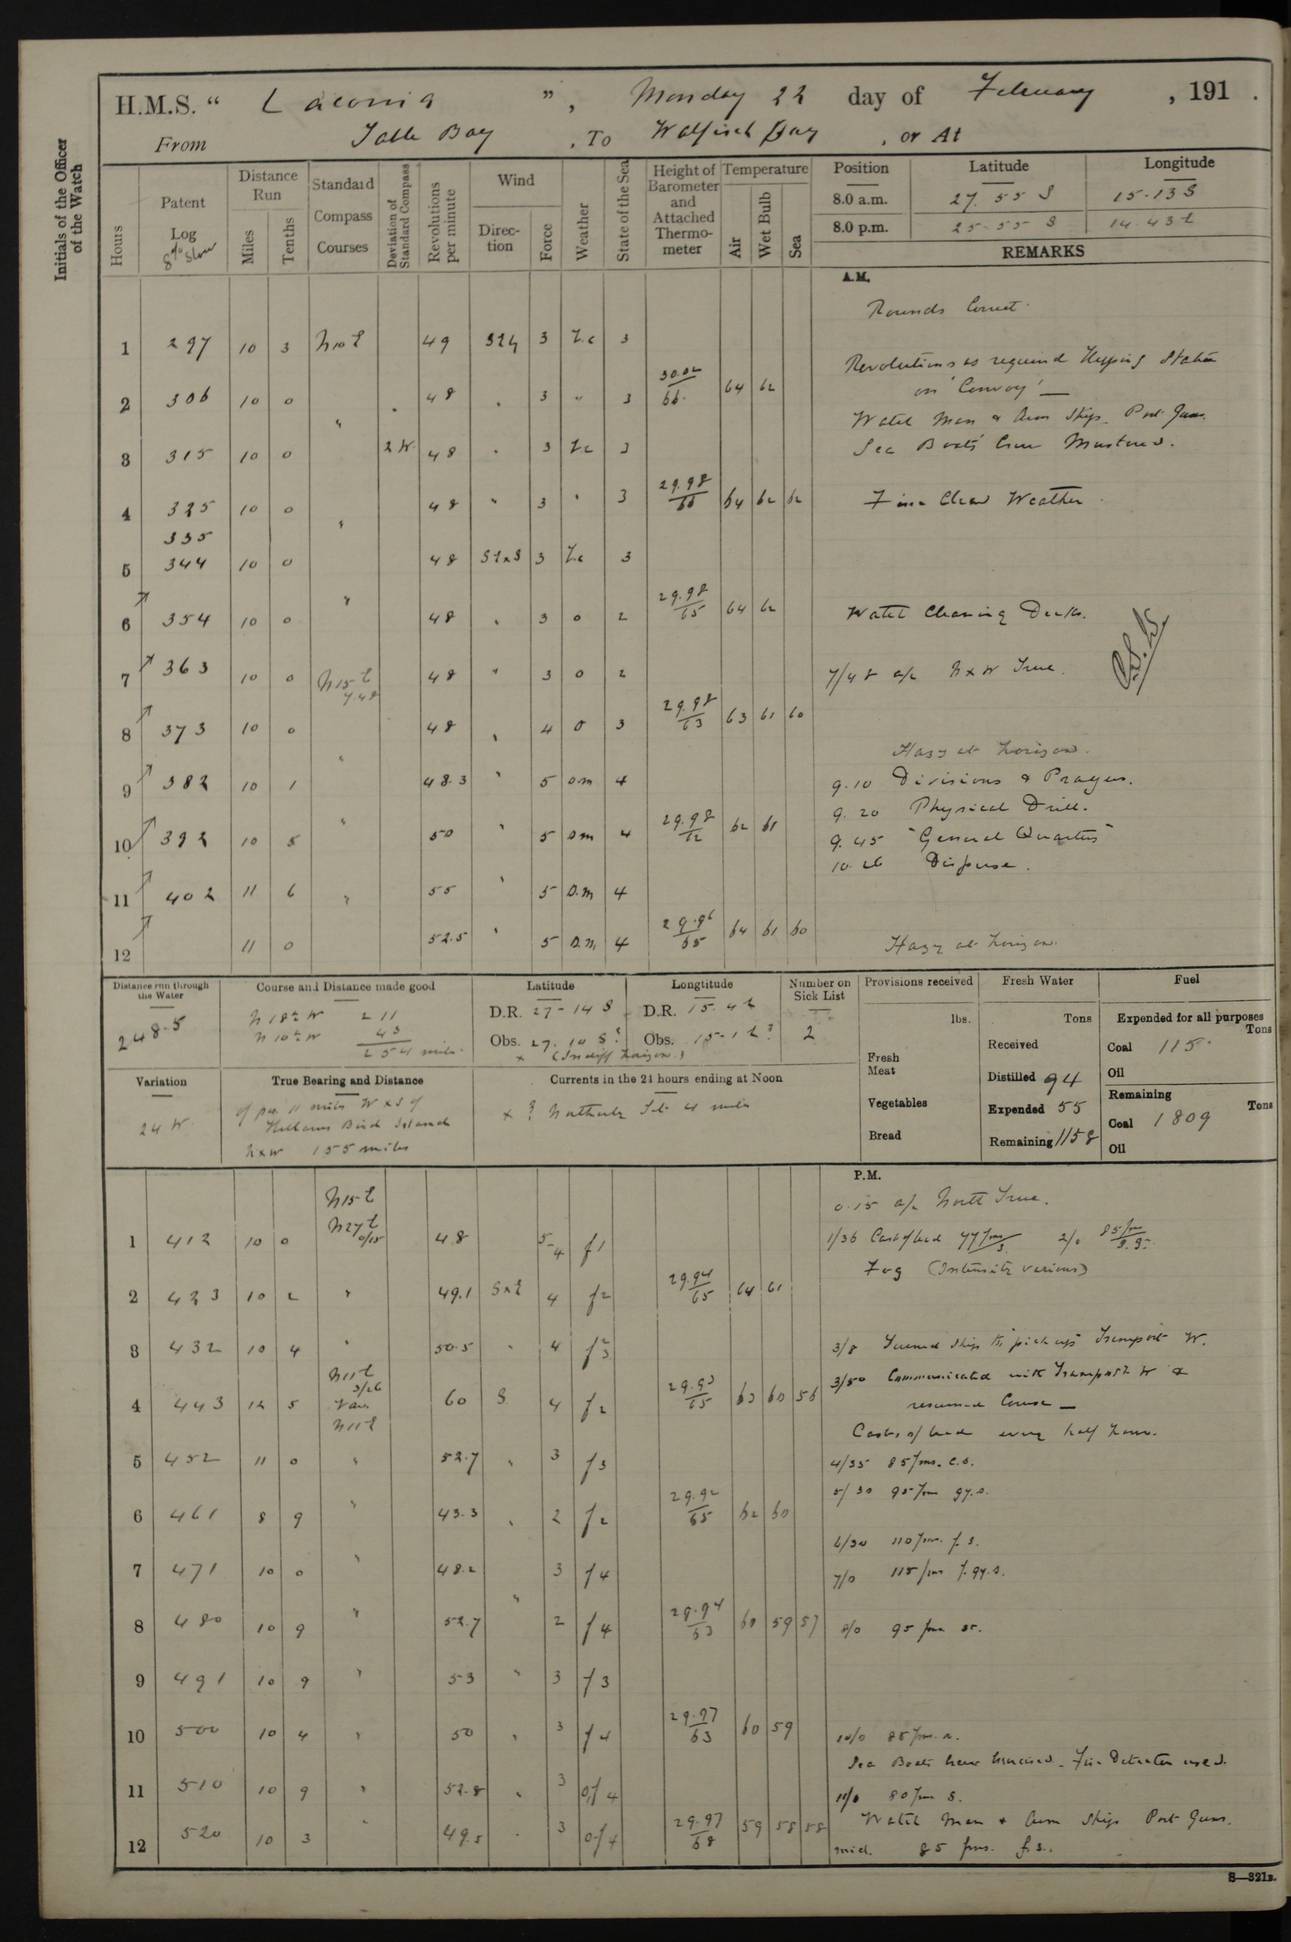 H.M.S. “ Laconia ”, Monday 22 day of February , 191 .
From Table Bay , To Walfisch Bay , or At
Initials of the Officer of the Watch
Hours
Patent Log
8% Slow
Distance Run
Miles
Tenths
Standard Compass Courses
Deviation of Standard Compass
Revolutions per minute
Wind
Direction
Force
Weather
State of the Sea
Height of Barometer and Attached Thermometer
Temperature
Air
Wet Bulb
Sea
Position Latitude Longitude
8.0 a.m. 27. 55 S 15-13
8.0 p.m. 25-55 S 14.43
REMARKS
A.M.
Rounds Correct.
1 297 10 3 N10E 49 3 3
Revolutions as required Keeping Station
on 'Convoy' —
2 306 10 0 " 48 3 " 3 30.02/66 64 62
Watch Man & Arm Ship. Port Guns.
Sea Boats Crew Mustered.
3 315 10 0 2 W. 48 3 3
4 325 10 0 " 48 " 3 " 3 29.98/66 64 62 62
Fine Clear Weather
335
5 344 10 0 48 3 3
6 354 10 0 " 48 3 o 2 29.98/65 64 62
Watch Cleaning Decks.
7 363 10 0 N15E 7.48 48 " 3 o 2
7/48 a/c N x W True.
8 373 10 0 48 4 o 3 29.98/63 63 61 60
Hazy at horizon.
9 382 10 1 " 48.3 " 5 o.m 4
9.10 Divisions & Prayers.
9.20 Physical Drill.
10 392 10 5 " 50 " 5 o m 4 29.98/62 62 61
9.45 "General Quarters"
10.26 Disperse.
11 402 11 6 " 55 " 5 o.m 4
12 11 0 52.5 " 5 o.m. 4 29.96/65 64 61 60
Hazy at horizon.
Distance run through the Water
248.5
Course and Distance made good
N 18½ W 211
N 10½ W 43
254 miles.
Latitude
D.R. 27-14 S
Obs. 27. 10 S?
Longtitude
D.R. 15. 4
Obs. 15-1 ?
x (Indiff horizon)
Number on Sick List
2
Provisions received
lbs.
Fresh Meat
Vegetables
Bread
Fresh Water
Tons
Received
Distilled 94
Expended 55
Remaining 1158
Fuel
Expended for all purposes
Tons
Coal 115.
Oil
Remaining
Tons
Coal 1809
Oil
Variation
24 W
True Bearing and Distance
11 miles W x S of
Hollams Bird Island
N x W 155 miles
Currents in the 24 hours ending at Noon
x ? Northerly Set 4 miles
P.M.
N15E
0.15 a/c North True.
1 412 10 0 N27E 0/15 48 5-4 f1
1/36 Cast of lead 77 fms 2/0 85 fm
Fog (Intensity various)
2 423 10 2 " 49.1 SxE 4 f2 29.94/65 64 61
3 432 10 4 " 50.5 " 4 f2/3
3/8 Turned Ship to "pick up" Transport W.
N11E
3/26
3/50 Communicated with Transport W &
resumed Course —
4 443 12 5 Var. 60 S 4 f2 29.93/65 63 60 56
N11E
Casts of lead every half hour.
5 452 11 0 " 52.7 " 3 f3
4/35 85 fms. c.s.
5/30 95 fm gy.s.
6 461 8 9 " 43.3 " 2 f2 29.92/65 62 60
6/30 110 fms. f. s.
7 471 10 0 " 48.2 3 f4
7/0 115 fms f. gy. s.
8 480 10 9 " 52.7 " 2 f4 29.94/63 60 59 57
8/0 95 fms
9 491 10 9 " 53 " 3 f3
10 500 10 4 " 50 " 3 f4 29.97/63 60 59
10/0 85 fms.
Sea Boats Crew Exercised. Fire Detector used.
11 510 10 9 " 52.8 " 3 o,f 4
11/0 80 fms S.
Watch Man & Arm Ship Port Guns.
12 520 10 3 " 49.5 3 of 4 29.97/68 59 58 58
mid. 85 fms. f.s.
S—321B.